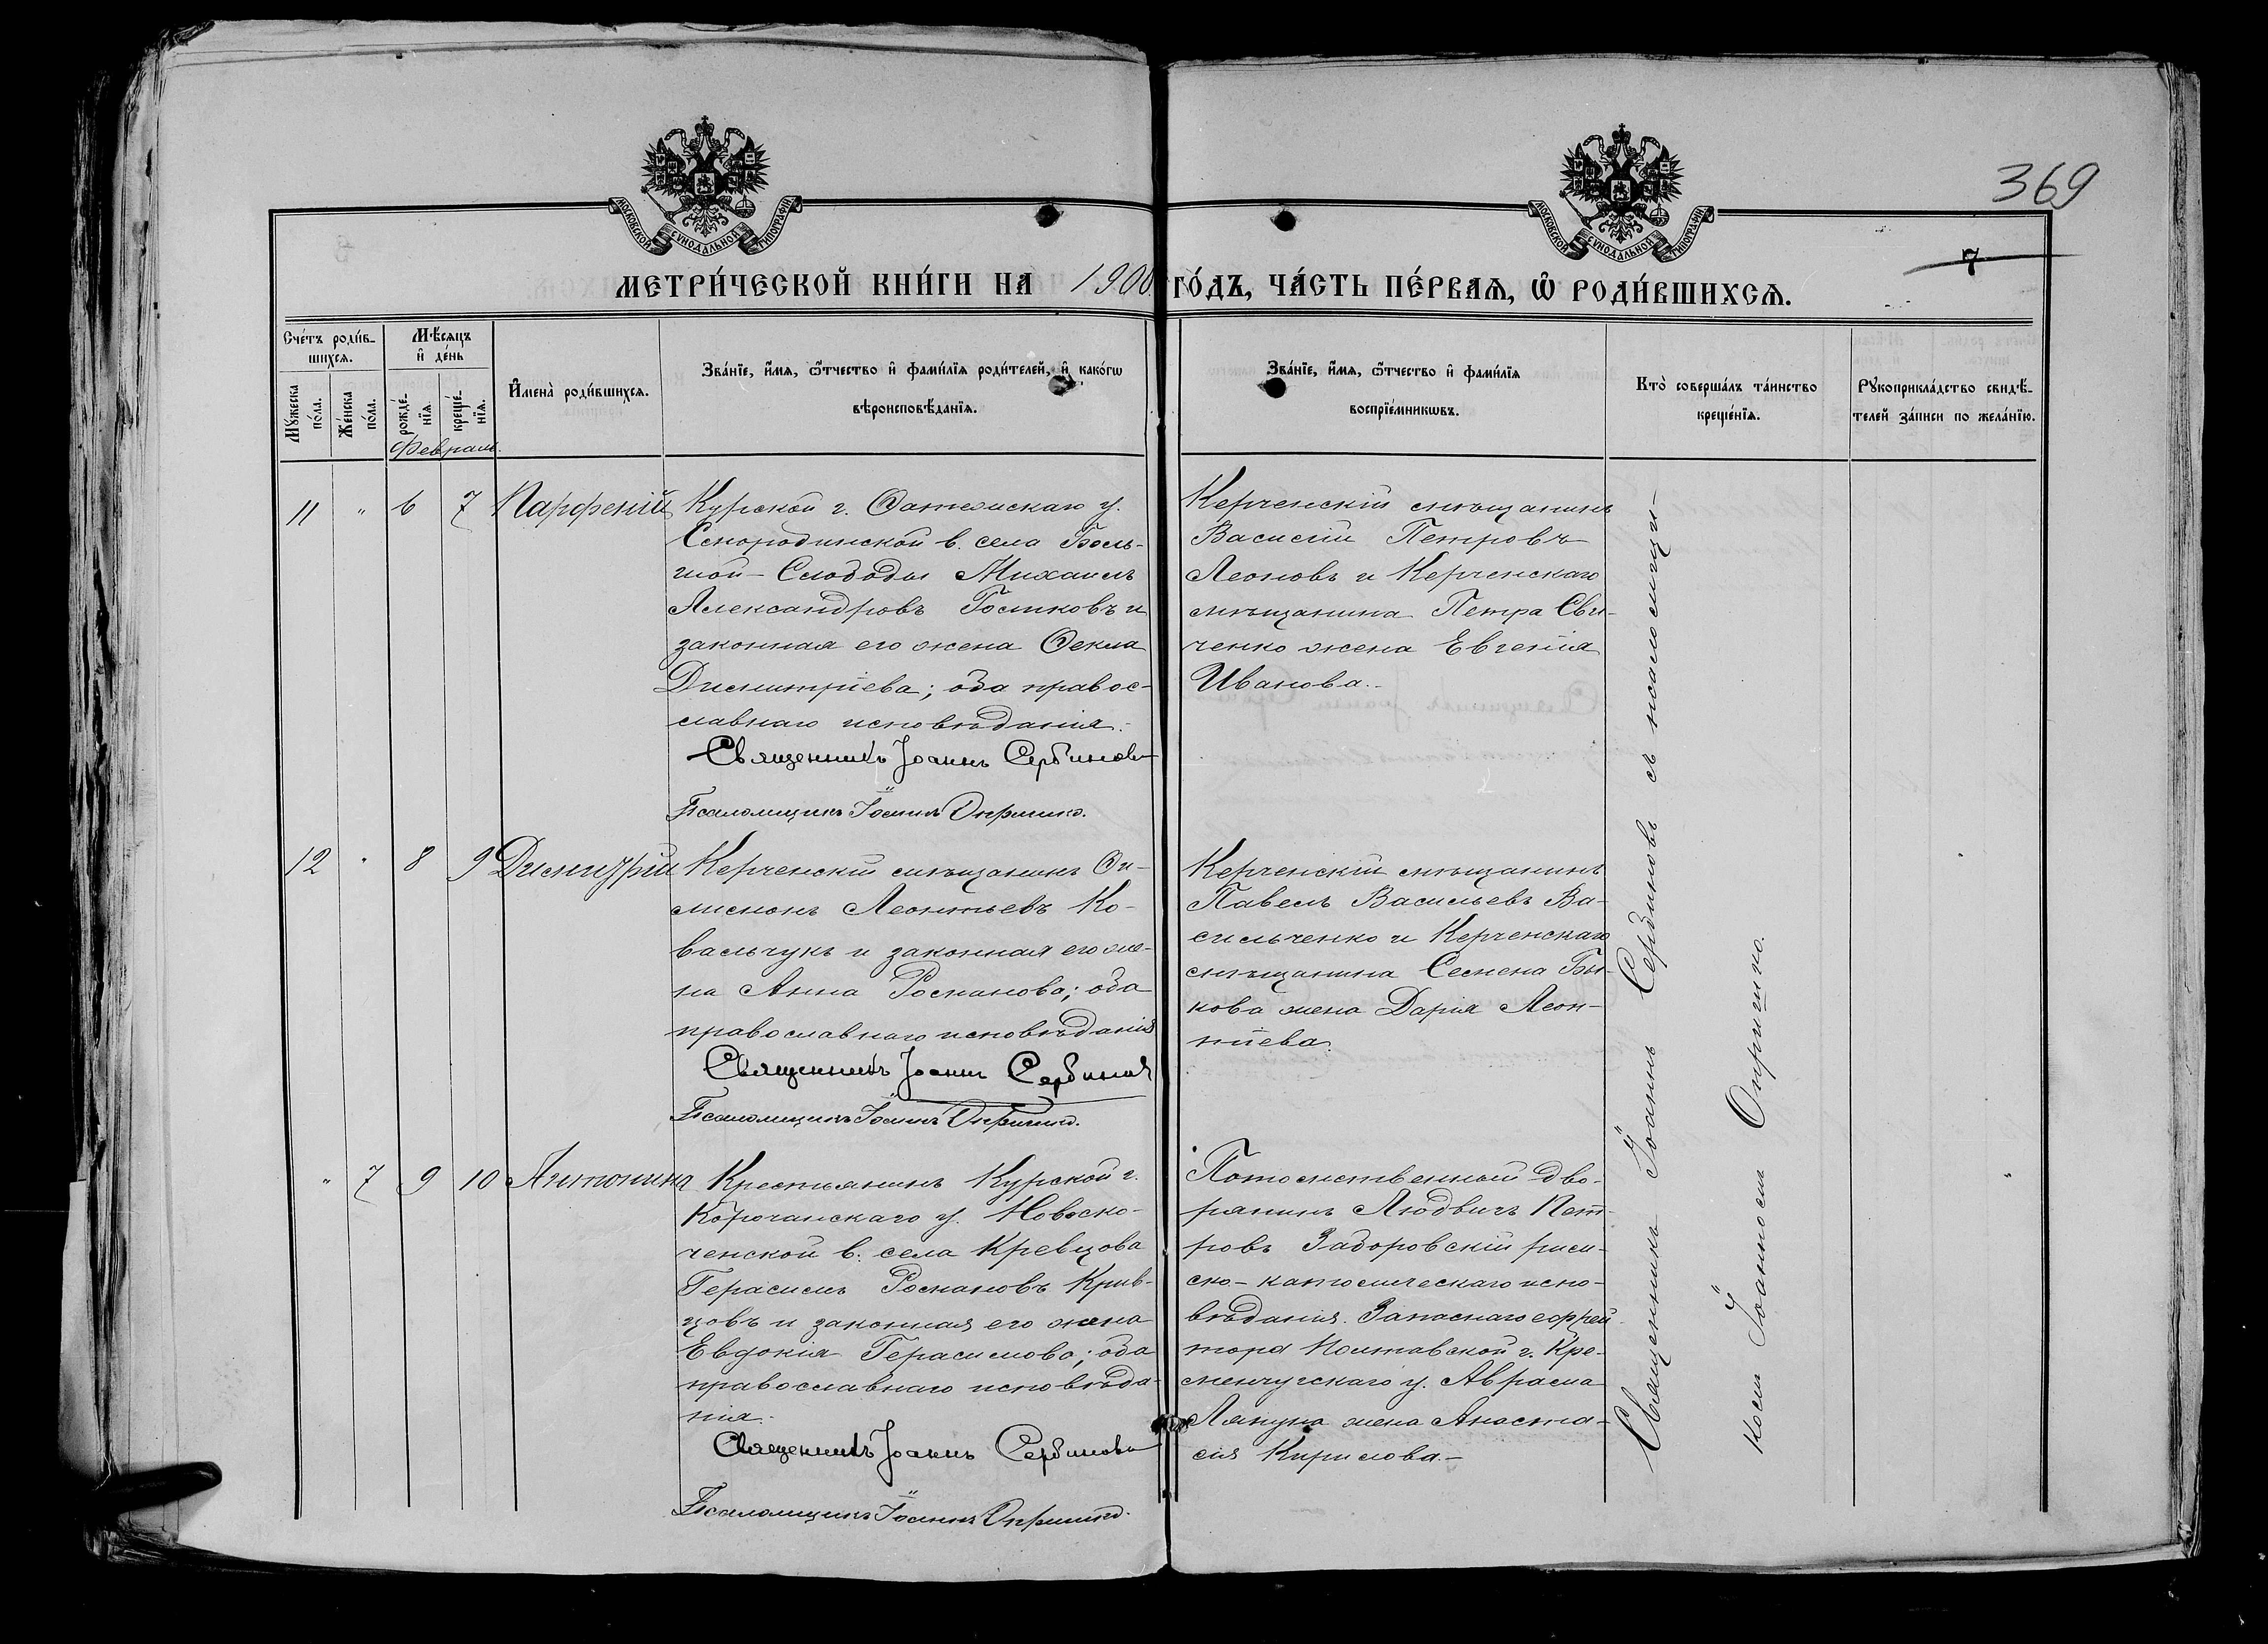 369
7
МОСКОВСКОЙ СѴНОДАЛЬНОЙ ТИПОГРАФІИ
МОСКОВСКОЙ СѴНОДАЛЬНОЙ ТИПОГРАФІИ
МЕТРИ́ЧЕСКОЙ КНИ́ГИ НА 1900 ГО́ДЪ, ЧА́СТЬ ПЕ́РВАѦ, Ѽ РОДИ́ВШИХСѦ.
Сче́тъ роди́в-
шихсѧ.
Мꙋ́жеска
по́ла.
Же́нска
по́ла.
Мѣ́сѧцъ
и҆ де́нь
рожде́-
нїѧ.
креще́-
нїѧ.
Февраль.
И҆мена̀ роди́вшихсѧ.
Зва́нїе, и҆́мѧ, ѻ҆́тчество и҆ фами́лїѧ роди́телей, и҆ како́гѡ
вѣроисповѣ́данїѧ.
Зва́нїе, и҆́мѧ, ѻ҆́тчество и҆ фами́лїѧ
воспрїе́мникѡвъ.
Кто̀ соверша́лъ та́инство
креще́нїѧ.
Рꙋкоприкла́дство свидѣ́-
телей за́писи по жела́нїю.
11 " 6 7 Парфеній
Курской г. Фатежскаго у.
Смородинской в. села Боль-
шой-Слободы Михаилъ
Александровъ Голиковъ и
законная его жена Ѳекла
Димитріева; оба правос-
лавнаго исповѣданія.
Священникъ Іоаннъ Сербиновъ
Псаломщикъ Іоаннъ Опришко.
Керченскій мѣщанинъ
Василій Петровъ
Леоновъ и Керченскаго
мѣщанина Петра Сви-
ченко жена Евгенія
Иванова.
12 " 8 9 Димитрій
Керченскій мѣщанинъ Фи-
лимонъ Леонтьевъ Ко-
вальчукъ и законная его же-
на Анна Романова; оба
православнаго исповѣданія
Священникъ Іоаннъ Сербиновъ
Псаломщикъ Іоаннъ Опришко.
Керченскій мѣщанинъ
Павелъ Васильевъ Ва-
сильченко и Керченскаго
мѣщанина Семена Бы-
кова жена Дарія Леон-
тіева.
" 7 9 10 Антонина
Крестьянинъ Курской г.
Корочанскаго у.
ченской в. села Кревцова
Герасимъ Романовъ Крив-
цовъ и законная его жена
Евдокія Герасимова; оба
православнаго исповѣда-
нія.
Священникъ Іоаннъ Сербиновъ
Псаломщикъ Іоаннъ Опришко.
Потомственный дво-
рянинъ Людвигъ Пет-
ровъ Задоровскій рим-
ско-католическаго испо-
вѣданія. Запаснаго ефрей-
тора Полтавской г. Кре-
менчугскаго у. Аврама
Ляпуна жена Анаста-
сія Кирилова.
Священникъ Іоаннъ Сербиновъ съ псаломщи-
комъ Іоанномъ Опришко.